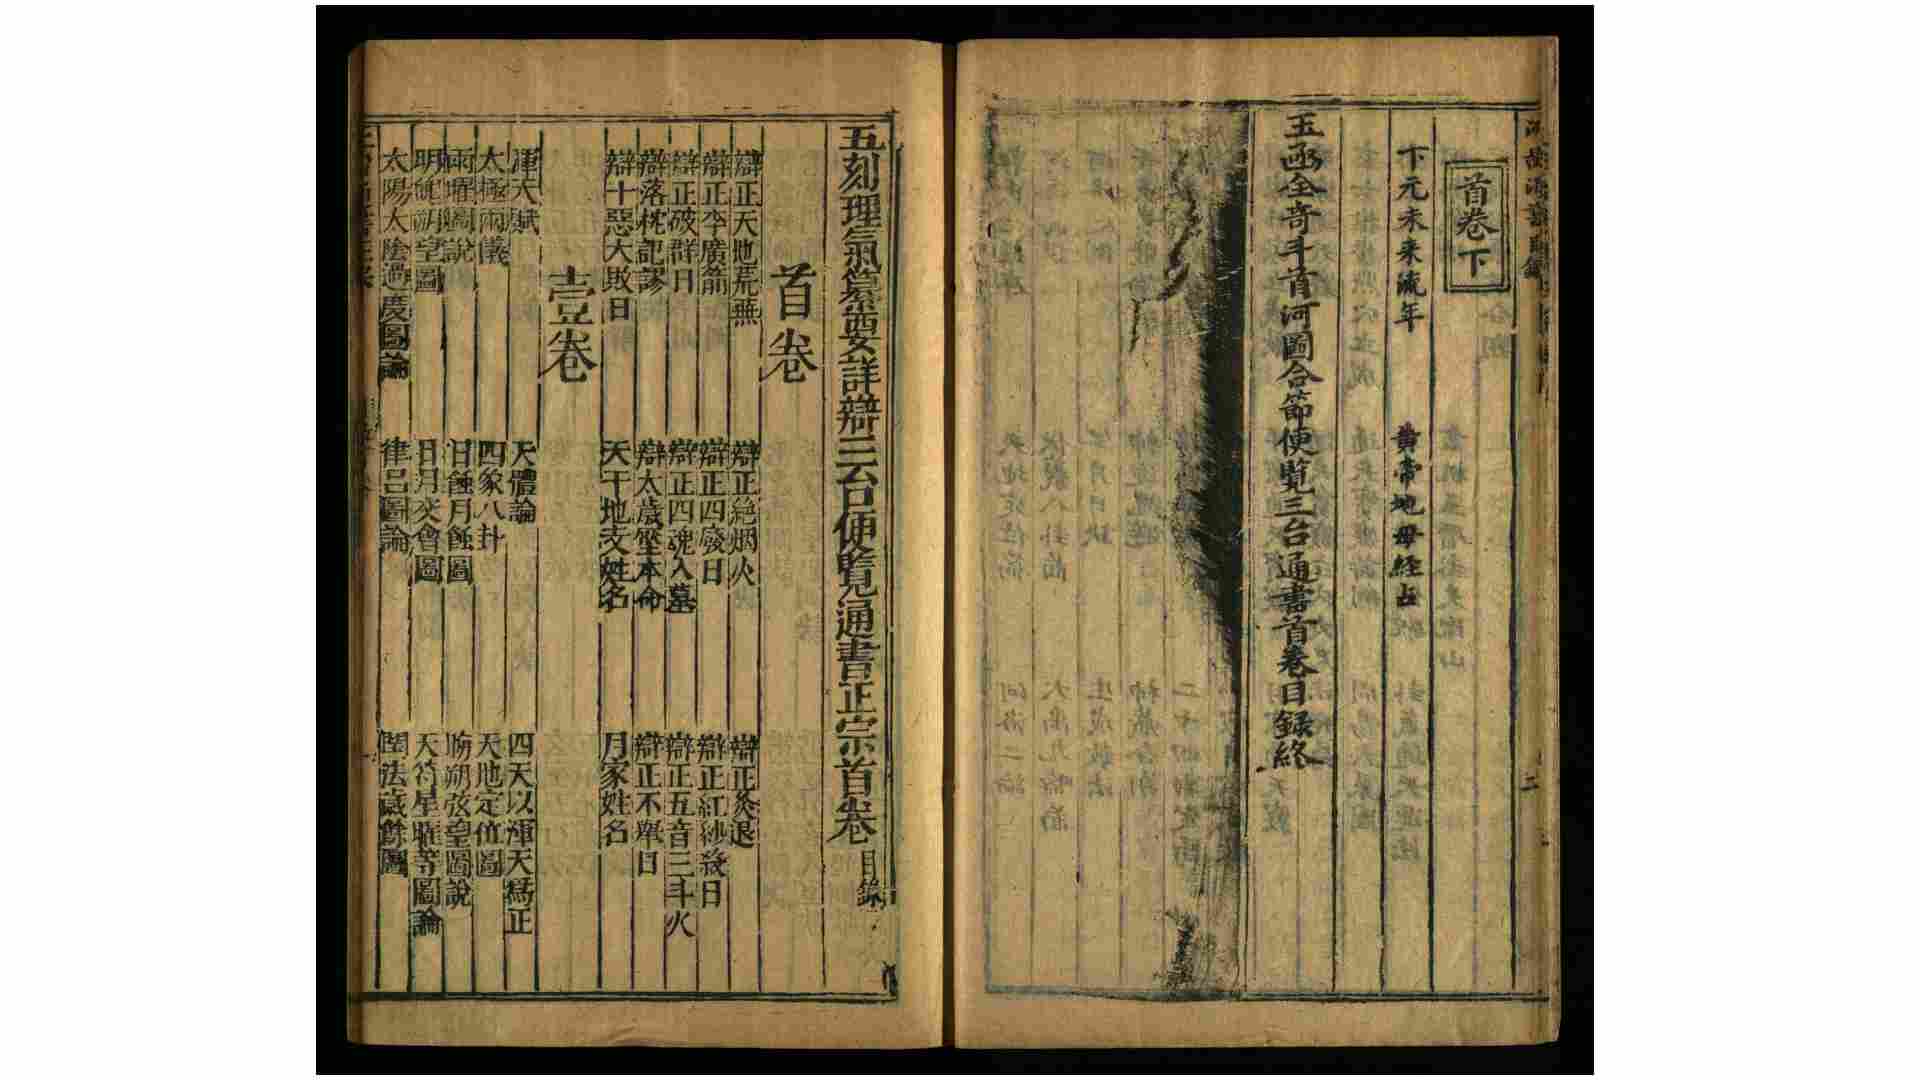 首卷下
下元未來流年 黄帝地母經占
玉函全奇斗首河圖合節便覧三台通書首卷目録終
五刻理氣纂要詳辯三台便覽通書正宗首卷 目錄
首卷
辯正天地荒蕪 辯正絶烟火 辯正灸退
辯正李廣箭 辯正四廢日 辯正紅紗殺日
辯正破群日 辯正四魂入墓 辯正五音三斗火
辯落枕記謬 辯太歲壓本命 辯正不舉日
辯十惡大敗日 天干地支姓名 月家姓名
壹卷
渾天賦 天體論 四天以渾天爲正
太極兩儀 四象八卦 天地定位圖
兩曜圖說 日蝕月蝕圖 晦朔弦望圖說
明魄朔望圖 日月交會圖 天符星曜等圖論
太陽太陰過度圖論 律吕圖論 閏法歲餘圖